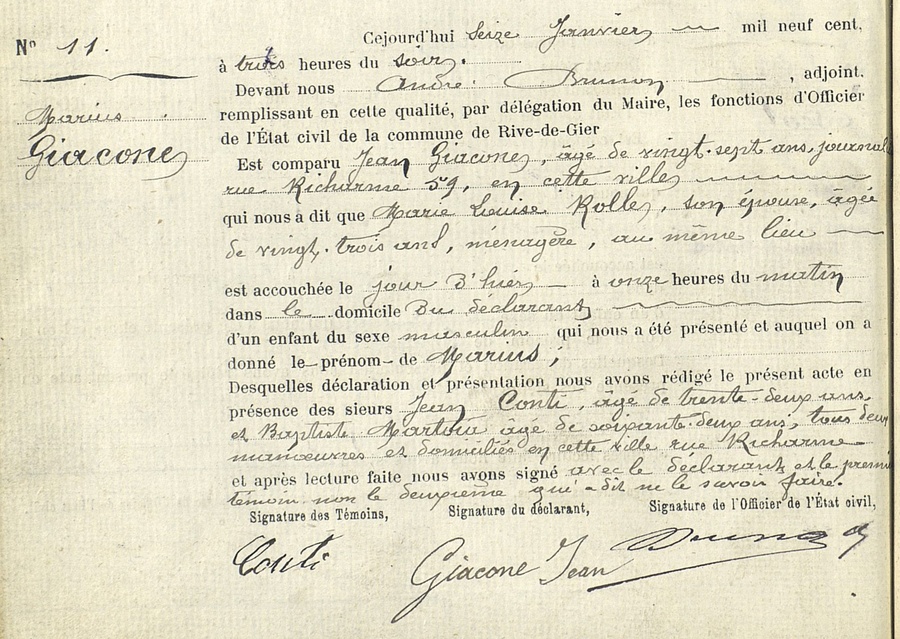 Nº 11.
Marius
Giacone
Cejourd'hui Seize Janvier mil neuf cent,
à trois heures du soir.
Devant nous André Brunon, adjoint,
remplissant en cette qualité, par délégation du Maire, les fonctions d'Officier
de l'État civil de la commune de Rive-de-Gier
Est comparu Jean Giacone, âgé de vingt-sept ans, journal
rue Richarme 59, en cette ville
qui nous a dit que Marie Louise Rolle, son épouse, âgée
de vingt-trois ans, ménagère, au même lieu
est accouchée le jour d'hier à onze heures du matin
dans le domicile du déclarant
d'un enfant du sexe masculin qui nous a été présenté et auquel on a
donné le prénom de Marius ;
Desquelles déclaration et présentation nous avons rédigé le présent acte en
présence des sieurs Jean Conti, âgé de trente-deux ans
et Baptiste agé de soixante-deux ans, tous deux
manœuvres et domiciliés en cette ville rue Richarme
et après lecture faite nous avons signé avec le déclarant et le premi
témoin non le deuxième qui a dit ne le savoir faire.
Signature des Témoins, Signature du déclarant, Signature de l'Officier de l'État civil,
Conti Giacone Jean Brunon